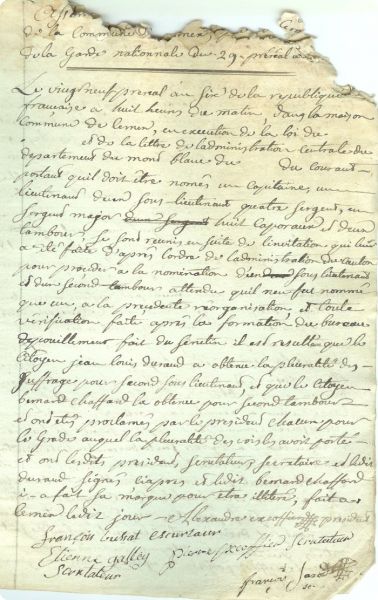 de la Commune de
de la Garde nationnale du 29 preréal a
Le vingt neuf preréal an Six de la republique
française a huit heures du matin, dans la maison
Commune de Lemen, en execution de la loi du
et de la lettre de l'administration centrale du
departement du mont blanc du du courant
portant qu'il doit être només un Capitaine, un
lieutenant deux sous-lieutenant quatre sergent, un
sergent major deux sergent huit Caporaux et deux
tambours Se sont reunis en suite de l'invitation qui leur
a été faite d'apres l'ordre de l'administration du canton
pour proceder a la nomination d'un sous lieutenant
et d'un second tambour attendu qu'il n'en fut nommé
que un, a la precedente reorganisation, et toute
verification faite après la formation du bureau
depouillement fait du Scrutin il est resulté que le
Citoyen jean louis durand a obtenu la pluralité des
Suffrages pour second sous lieutenant, et que le Citoyen
bernard chaffard la obtenue pour second tambour
et ont étés proclamés par le president chacun pour
le Grade auquel la pluralité des voix les avoit porté
et ont lesdits president, scrutateurs, secretaire et ledit
durand signés ci apres et ledit bernard chaffard
a fait sa marque pour être illitéré, fait a
lemen ledit jour Alexandre excoffier president
françois bussat escruteur
Etienne galley Pierre excoffier scrutateur
Scrutateur
françois